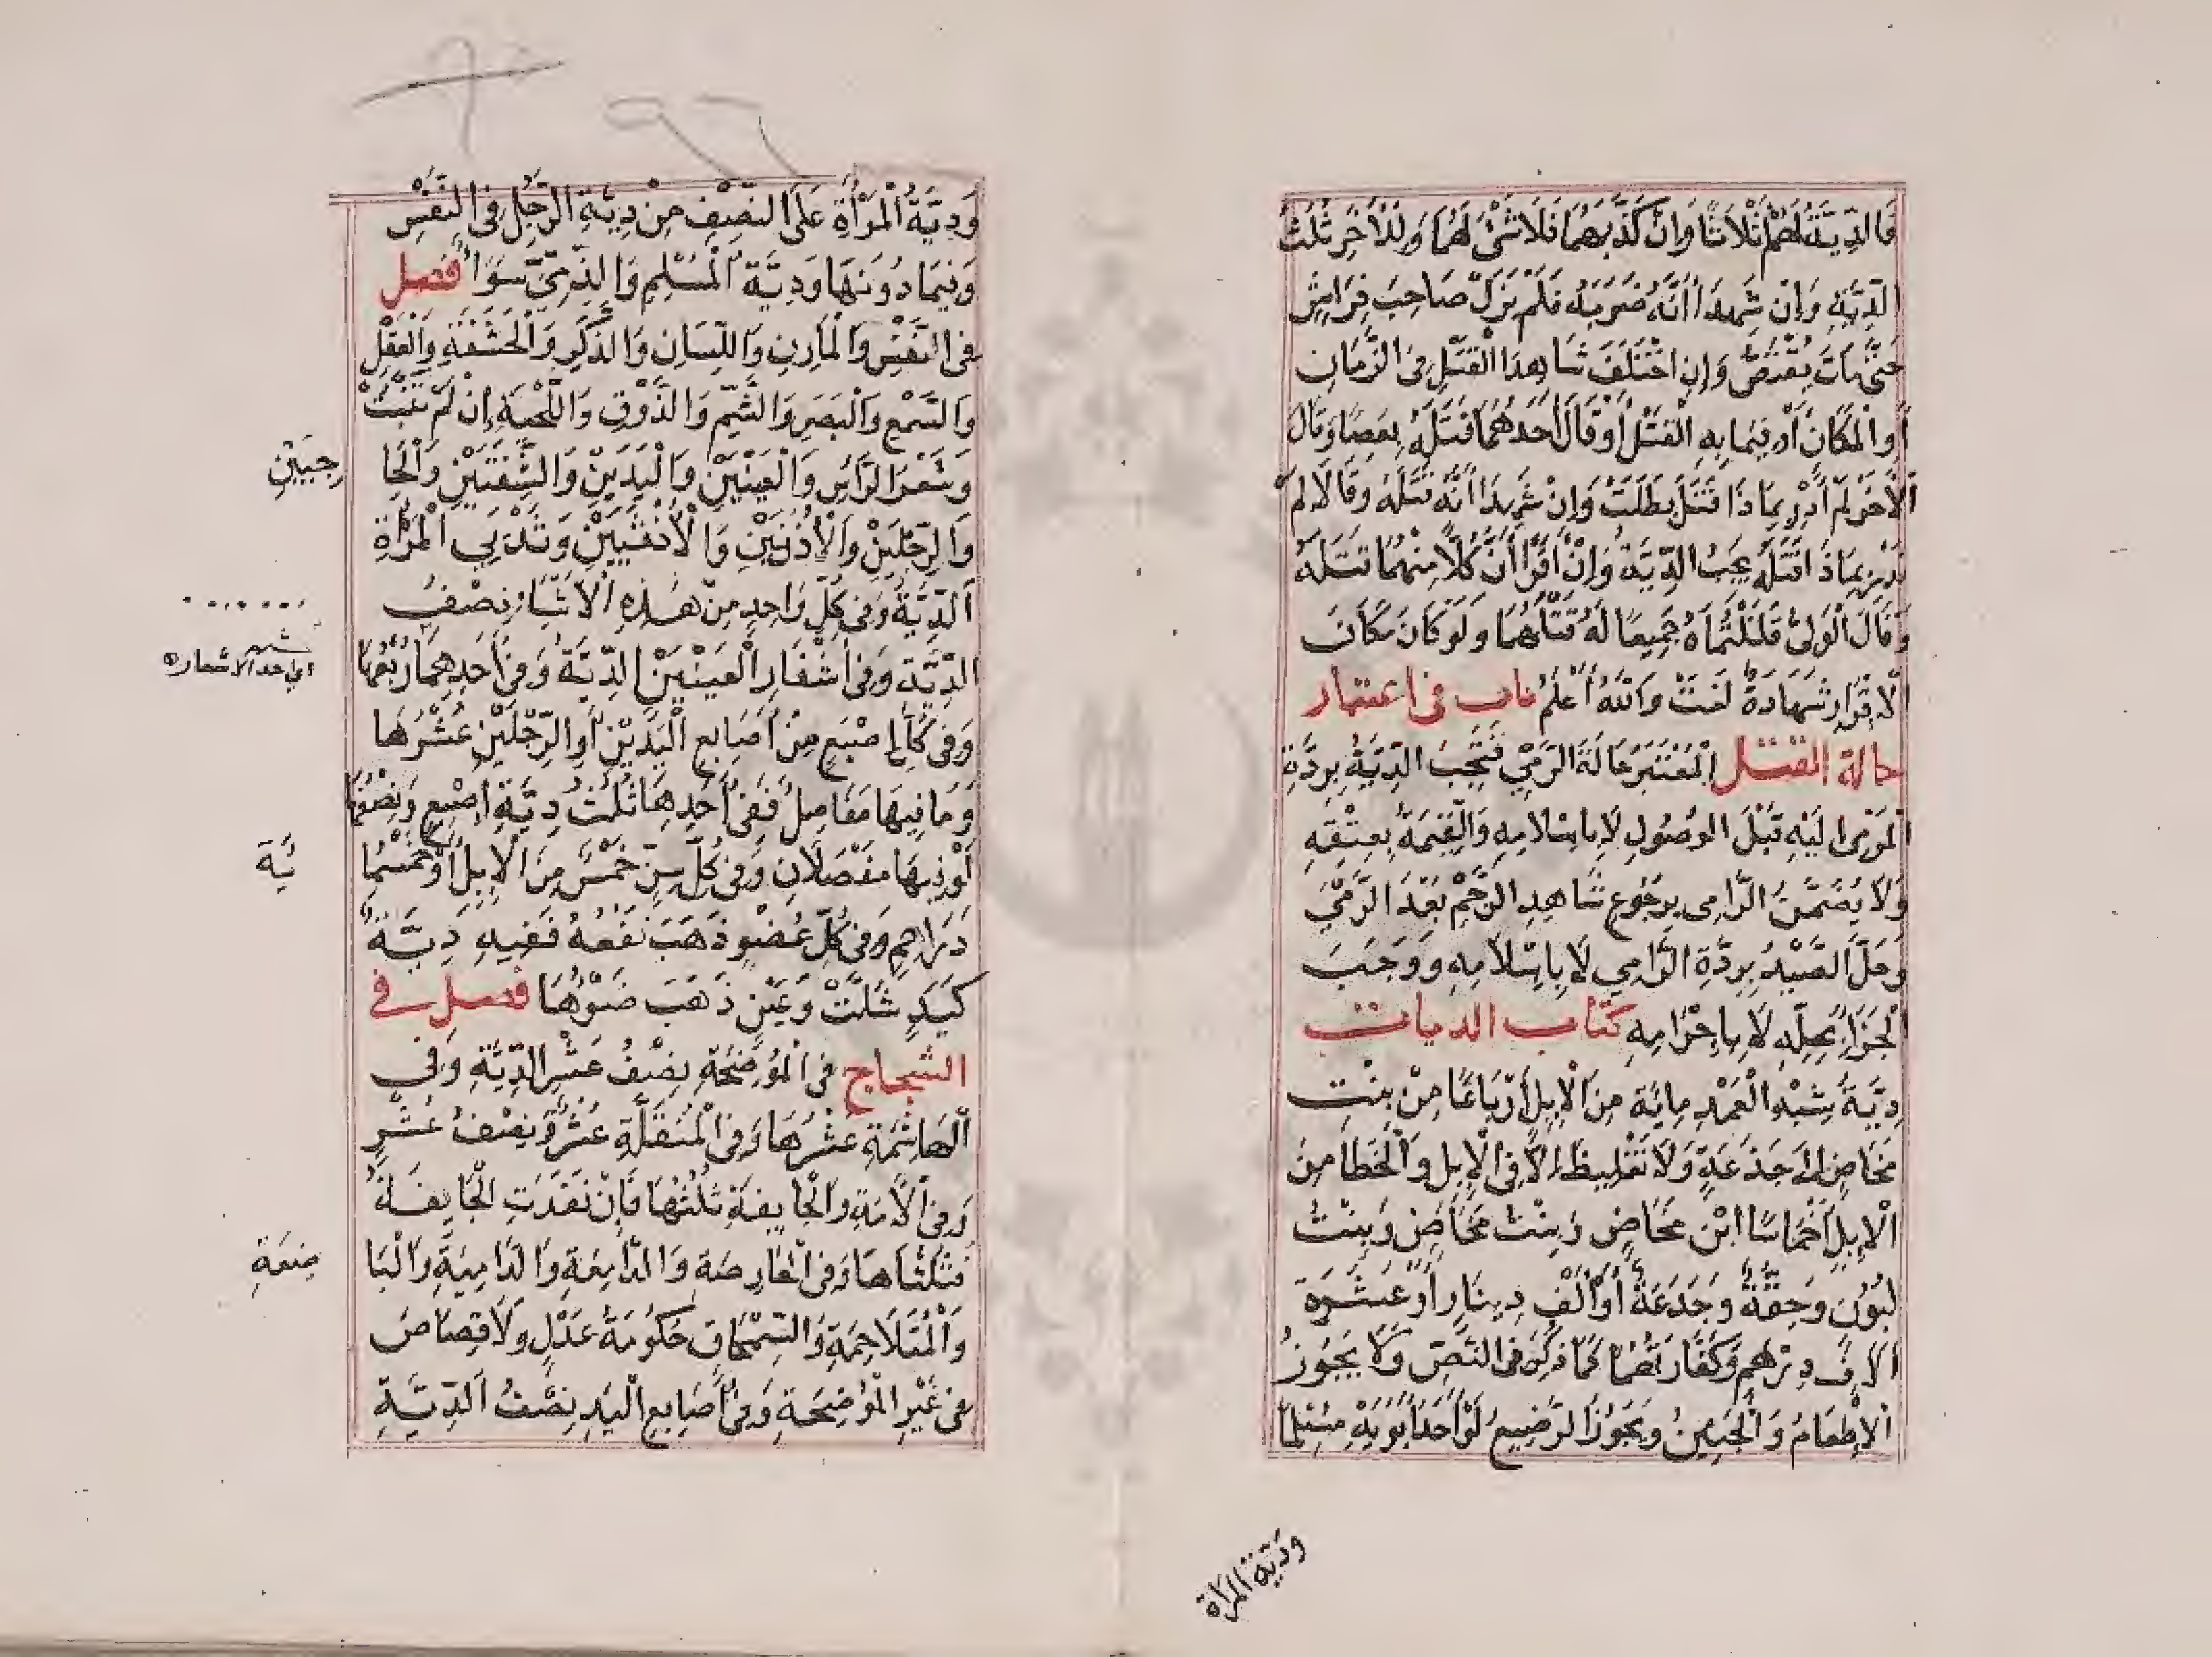 فَالدِّيَةُ لَهُمْ ثْلَاثًا وَإنْ كَذَّبَهُمَا فَلَا شَىْءَ لَهُمَا وَلِلْآخَرِ ثُلُثُ
الدِّيَةِ وَإنْ شَهِدَا أَنَّهُ ضَرَبَهُ فَلَمْ يَزَلْ صَاحِبَ فِرَاشٍ
حَتَّى مَاتَ يُقْتَصُّ وَإنِ اخْتَلَفَ شَاهِدَا الْقَتْلِ فِى الزَّمَانِ
أَوِ الْمَكَانَ أَوْ فِيمَا بِهِ الْقَتْلُ أَوْ قَالَ أَحَدُهُمَا قَتَلَهُ بِعَصًا وَقَالَ
الْآخَرُ لَمْ أَدْرِ بِمَاذَا قَتَلَ بَطَلَتْ وَإنْ شَهِدَا أَنَّهُ قَتَلَهُ وَقَالَا لَمْ
نَدْرِ بِمَاذَا قَتَلَهُ يَجِبُ الدِّيَةُ وَإنْ أَقَرَّا أَنَّ كُلًّا مِنْهُمَا قَتَلَهُ
وَقَالَ الْوَلِىُّ قَتَلْتُمَاهُ جَمِيعًا لَهُ قَتْلُهُمَا وَلَوْ كَانَ مَكَانَ
الْإقْرَارِ شَهَادَةٌ لَغَتْ وَاللّٰهُ أَعْلَمُ باب فى اعتبار
حالة القتل الْمُعْتَبَرُ حَالَةَ الرَّمْيِ فَتَجِبُ الدِّيَةُ بِرِدَّةِ
الْمَرْمِى إلَيْهِ قَبْلَ الوُصُولِ لَا بِإسْلَامِهِ وَالْقِيمَةُ بِعِتْقِهِ
وَلَا يَضْمَنُ الرَّامِى بِرُجُوعِ شَاهِدِ الرَّجْمِ بَعْدَ الرَّمْيِ
وَحَلَّ الصَّيْدُ بِرِدَّةِ الرَّامِي لَا بِإسْلَامِهِ وَوَجَبَ
الْجَزَاءُ بِحِلِّهِ لَا بِإحْرَامِهِ كتاب الديات
دِيَةُ شِبْهِ الْعَمْدِ مِائَة مِنَ الْإبِلِ أَرْبَاعًا مِنْ بِنْتِ
مَخَاضٍ إلَى جَذَعَةٍ وَلَا تَغْلِيظَ إلَّا فِى الْإبِلِ وَالْخَطَأ مِنَ
الْإبِلِ أَخْمَاسًا ابْنُ مَخَاضٍ وَبِنْتُ مَخَاضٍ وَبِنْتُ
لَبُوْنٍ وَحِقَّةٌ وَجَذَعَةٌ أَوْ أَلْفِ دِينَارٍ أَوْ عَشَرَةِ
آلَافِ دِرْهَمٍ وَكَفَّارَتُهُمَا مَا ذُكِرَ فِى النَّصِّ وَلَا يَجُوزُ
الْإطْعَامُ وَالْجَنِينُ وَيَجُوزُ الرَّضِيعُ لَوْ أَحَدُ أَبَوَيْهِ مُسْلِمًا
ودية المرأة
وَدِيَةُ الْمَرْأَةِ عَلَى النِّصْفِ مِنْ دِيَةِ الرَّجُلِ فِى النَّفْسِ
وَفِيمَا دُونَهَا وَدِيَةُ الْمُسْلِمِ وَالذِّمِّىِّ سَوَاءٌ فصل
فِى النَّفْسِ وَالْمَارِنِ وَاللِّسَانِ وَالذَّكَرِ وَالْحَشَفَةِ وَالْعَقْلِ
وَالسَّمْعِ وَالْبَصَرِ وَالشَّمِّ وَالذَّوْقِ وَاللِّحْيَةِ إنْ لَمْ تَنْبُتْ
وَشَعْرِ الرَّأْسِ وَالْعَيْنَيْنِ وَالْيَدَيْنِ وَالشَّفَتَيْنِ وَالْحَا
جِبَيْنِ
وَالرِّجْلَيْنِ وَالْأُذُنَيْنِ وَالْأُنْثَيَيْنِ وَثَدْيَيِ الْمَرْأَةِ
الدِّيَةُ وَفِى كُلِّ وَاحِدٍ مِنْ هٰذِهِ الْأَشْيَاءِ نِصْفُ
الدِّيَةِ وَفِى أَشْفَارِ الْعَيْنَيْنِ الدِّيَةُ وَفِى أَحَدِهِمَا رُبُعُهَا
اي احد الاشفار
وَفِى كُلِّ إصْبَعٍ مِنْ أَصَابِعِ الْيَدَيْنِ أَوِ الرِّجْلَيْنِ عُشْرُهَا
وَمَا فِيهَا مَفَاصِلُ فَفِى أَحَدِهَا ثُلُثُ دِيَةِ إصْبَعٍ وَنِصْفُهَا
لَوْ فِيهَا مَفْصَلَانِ وَفِى كُلِّ سِنٍّ خَمْسٌ مِنَ الْإبِلِ أَوْ خَمْسُمِا
ئَةِ
دَرَاهِمٍ وَفِى كُلِّ عُضْوٍ ذَهَبَ نَفْعُهُ فَفِيهِ دِيَةٌ
كَيَدٍ شَلَّتْ وَعَيْنٍ ذَهَبَ ضَوْؤُهَا فصل في
الشجاج فِى الْمُوضِحَةِ نِصْفُ عُشْرِ الدِّيَةِ وَفِي
الْهَاشِمَةِ عُشْرُهَا وَفِى الْمُنَقِّلَةِ عُشْرٌ وَنِصْفُ عُشْرٍ
وَفِى الْآمَّةِ وَالْجَائِفَةِ ثُلُثُهَا فَإنْ نَفَذَتِ الْجَائِفَةُ
فَثُلُثَاهَا وَفِى الْحَارِصَةِ وَالدَّامِعَةِ وَالدَّامِيَةِ وَالْبَا
ضِعَةِ
وَالْمُتَلَاحِمَةِ وَالسِّمْحَاقِ حَكُومَةُ عَدْلٍ وَلَا قِصَاصَ
فِى غَيْرِ الْمُوضِحَةِ وَفِى أَصَابِعِ الْيَدِ نِصْفُ الدِّيَةِ